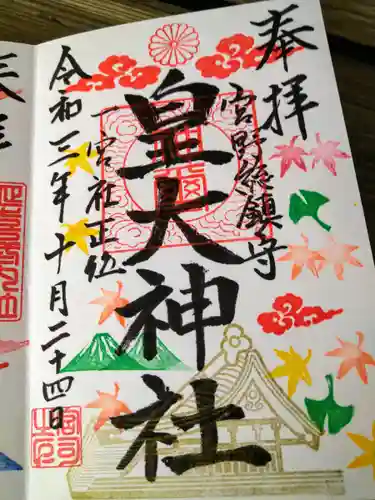 奉拝
宮野総鎮守
皇大神社
一宮社正位
令和三年十月二十四日
宮司之印